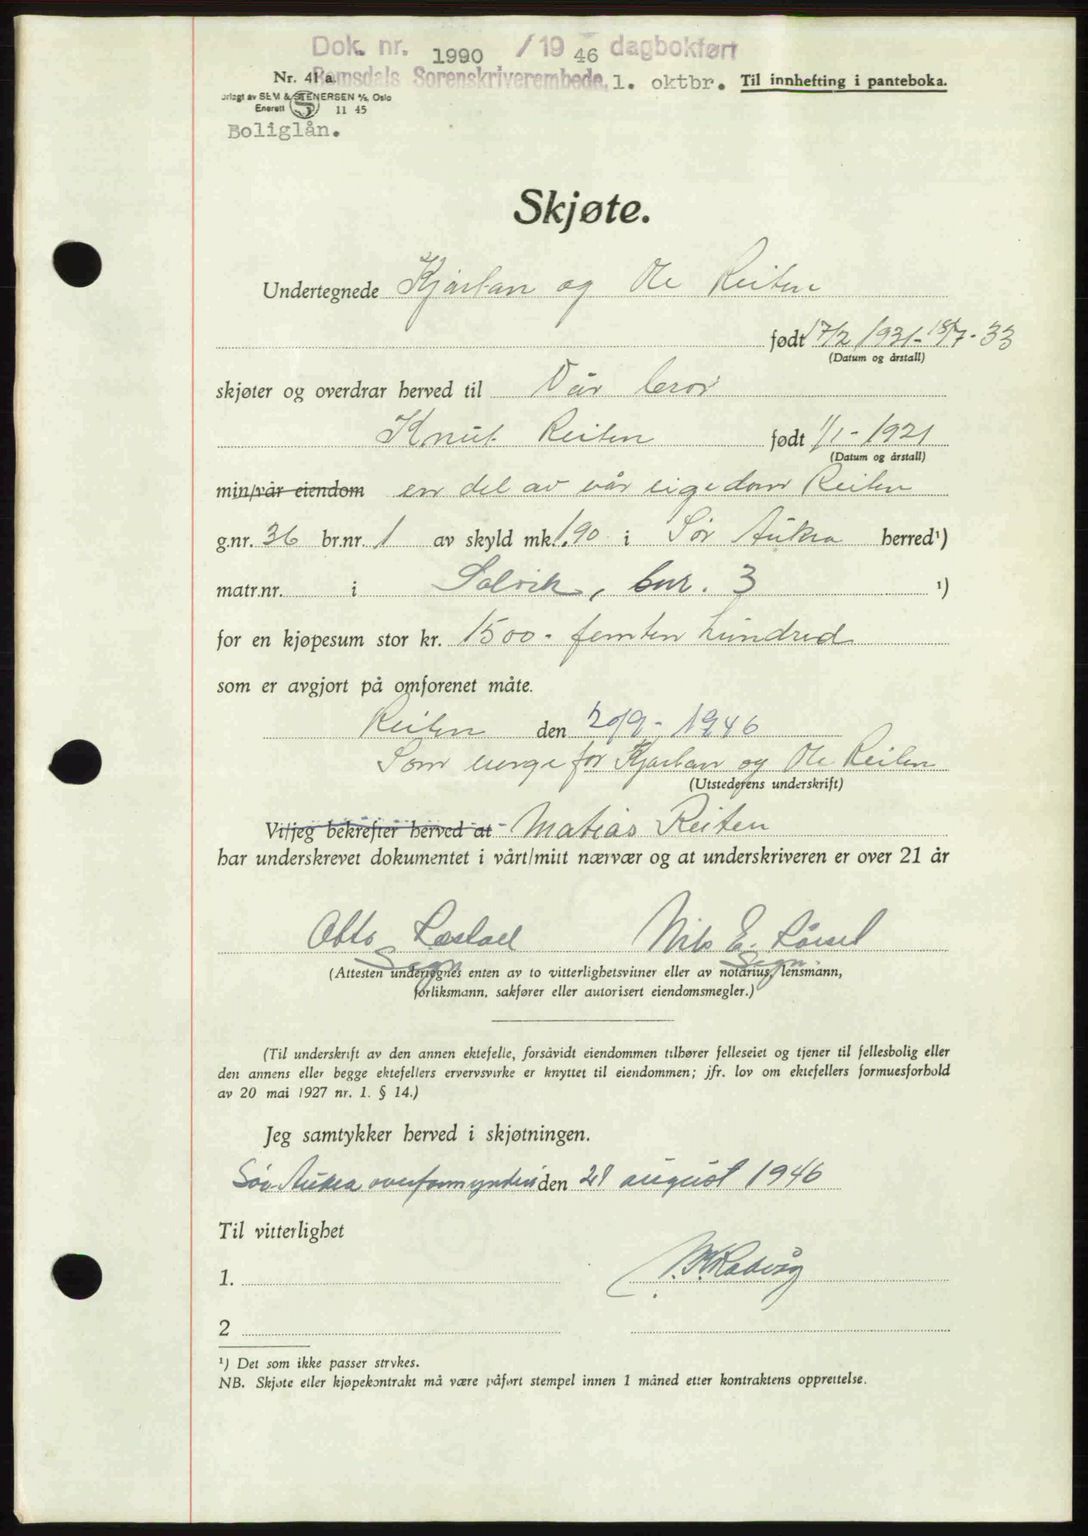 Dok. nr. 1990 / 19 46 dagbokført
Nr. 41 a. Romsdals Sorenskriverembede, 1. oktbr. Til innhefting i panteboka.
SEM & STENERSEN A/S, Oslo
Enerett 11 45
Boliglån.
Skjøte.
Undertegnede Kjartan og Ole Reiten
født 17/2 1931 - 18/7 - 33
(Datum og årstall)
skjøter og overdrar herved til Vår bror
Knut Reiten født 1/1 - 1921
(Datum og årstall)
min/vår eiendom en del av vår eigedom Reiten
g.nr. 36 br.nr 1 av skyld mk. 1.90 i Sør Aukra herred¹)
matr.nr. i Solvik, bnr. 3 ¹)
for en kjøpesum stor kr. 1500 - femten hundred
som er avgjort på omforenet måte.
Reiten den 20/9 - 1946
Som verge for Kjartan og Ole Reiten
(Utstederens underskrift)
Vi/jeg bekrefter herved at Matias Reiten
har underskrevet dokumentet i vårt/mitt nærvær og at underskriveren er over 21 år
Otto Nils E.
Sign Sign.
(Attesten undertegnes enten av to vitterlighetsvitner eller av notarius, lensmann,
forliksmann, sakfører eller autorisert eiendomsmegler.)
(Til underskrift av den annen ektefelle, forsåvidt eiendommen tilhører felleseiet og tjener til fellesbolig eller
den annens eller begge ektefellers ervervsvirke er knyttet til eiendommen; jfr. lov om ektefellers formuesforhold
av 20 mai 1927 nr. 1. § 14.)
Jeg samtykker herved i skjøtningen.
Sør-Aukra overformynderi den 21 august 1946
Til vitterlighet
1.
2
¹) Det som ikke passer strykes.
NB. Skjøte eller kjøpekontrakt må være påført stempel innen 1 måned etter kontraktens opprettelse.